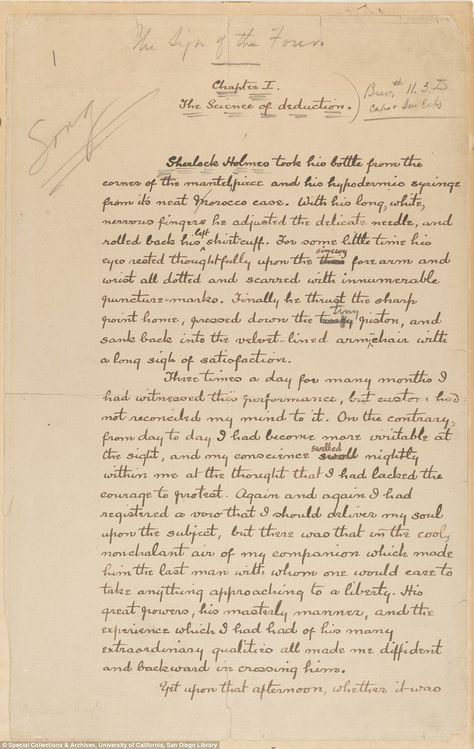 The Sign of the Four
1
Chapter I.
The Science of deduction.
Sherlock Holmes took his bottle from the
corner of the mantelpiece and his hypodermic syringe
from its neat Morocco case. With his long, white,
nervous fingers he adjusted the delicate needle, and
rolled back his left shirtcuff. For some little time his
eyes rested thoughtfully upon the sinewy forearm and
wrist all dotted and scarred with innumerable
puncture-marks. Finally he thrust the sharp
point home, pressed down the tiny piston, and
sank back into the velvet-lined armchair with
a long sigh of satisfaction.
Three times a day for many months I
had witnessed this performance, but custom had
not reconciled my mind to it. On the contrary,
from day to day I had become more irritable at
the sight, and my conscience swelled nightly
within me at the thought that I had lacked the
courage to protest. Again and again I had
registered a vow that I should deliver my soul
upon the subject, but there was that in the cool,
nonchalant air of my companion which made
him the last man with whom one would care to
take anything approaching to a liberty. His
great powers, his masterly manner, and the
experience which I had had of his many
extraordinary qualities all made me diffident
and backward in crossing him.
Yet upon that afternoon, whether it was
© Special Collections & Archives, University of California, San Diego Library